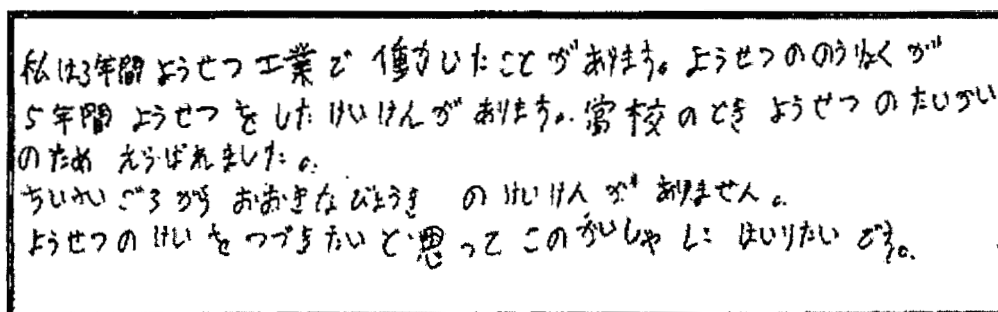 私は3年間ようせつ工業で働いたことがあります。ようせつののうりょくが
5年間ようせつをしたけいけんがあります。当校のときようせつのたいかい
のためえらばれました。
ちいさいごろからおおきなびょうきのけいけんがありません。
ようせつのけいをつづきたいと思ってこのがいしゃにはいりたいです。